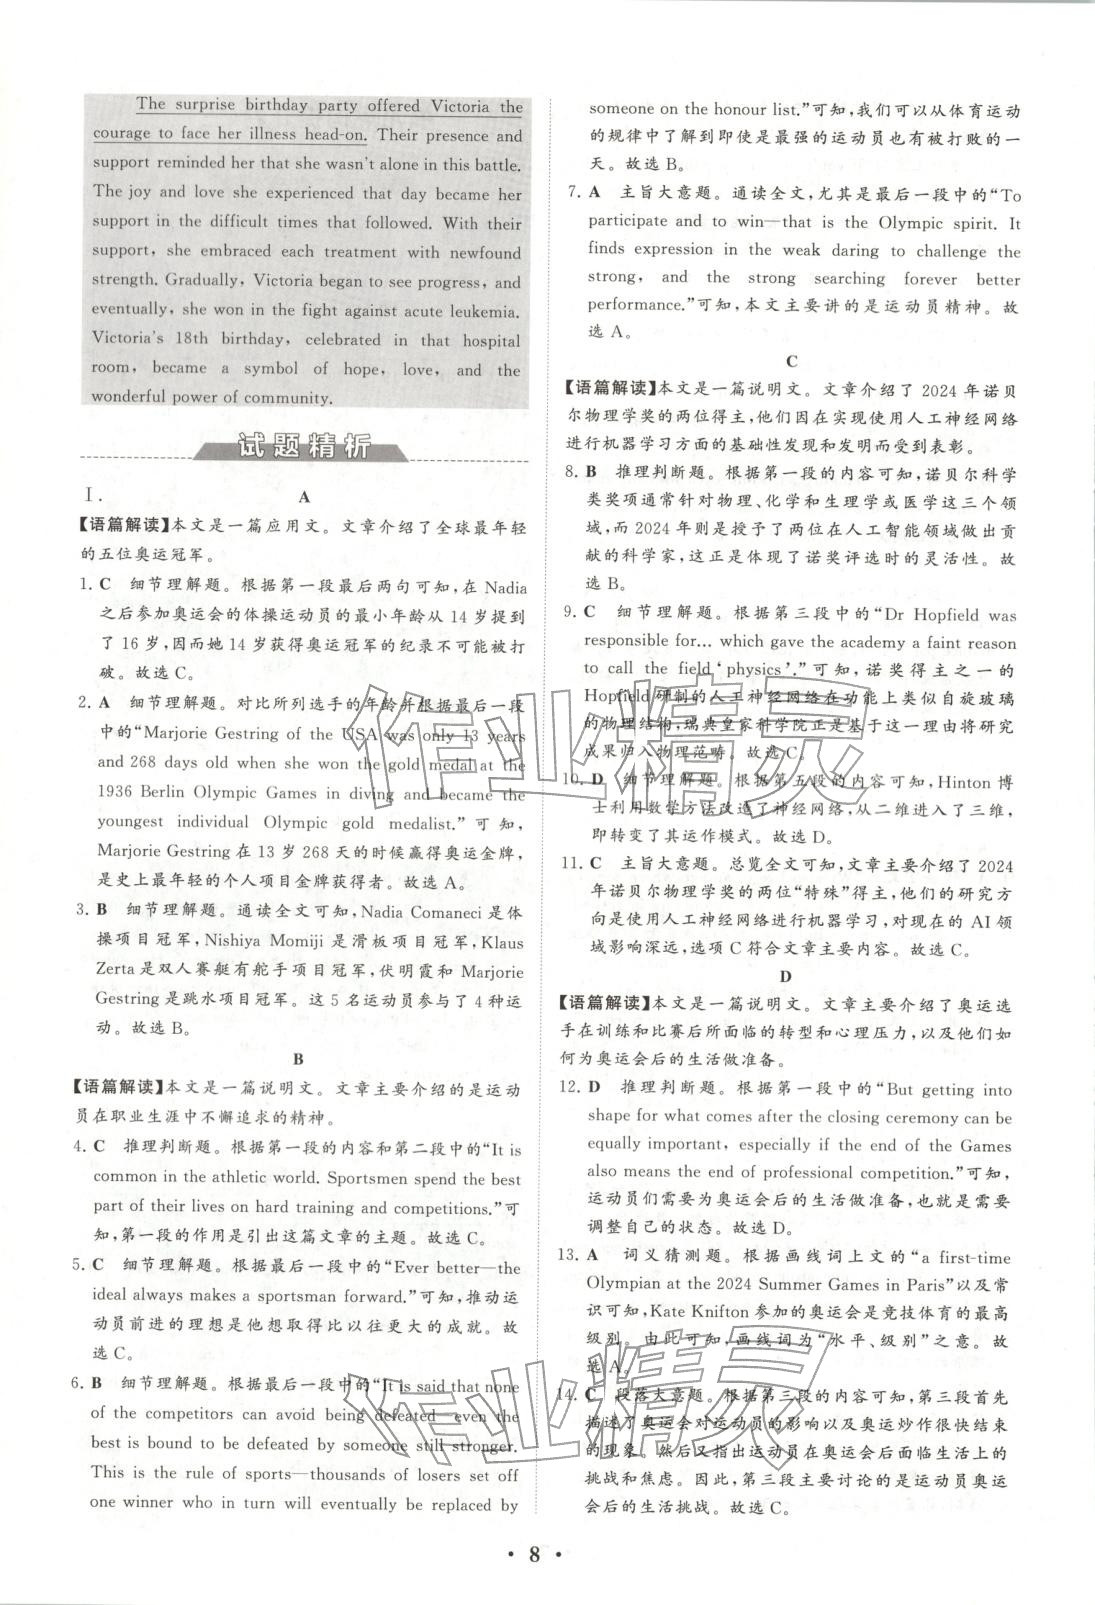 The surprise birthday party offered Victoria the
courage to face her illness head-on. Their presence and
support reminded her that she wasn't alone in this battle.
The joy and love she experienced that day became her
support in the difficult times that followed. With their
support, she embraced each treatment with newfound
strength. Gradually, Victoria began to see progress, and
eventually, she won in the fight against acute leukemia.
Victoria's 18th birthday, celebrated in that hospital
room, became a symbol of hope, love, and the
wonderful power of community.
试题精析
Ⅰ.
A
【语篇解读】本文是一篇应用文。文章介绍了全球最年轻
的五位奥运冠军。
1. C 细节理解题。根据第一段最后两句可知,在 Nadia
之后参加奥运会的体操运动员的最小年龄从 14 岁提到
了 16 岁,因而她 14 岁获得奥运冠军的纪录不可能被打
破。故选 C。
2. A 细节理解题。对比所列选手的年龄并根据最后一段
中的“Marjorie Gestring of the USA was only 13 years
and 268 days old when she won the gold medal at the
1936 Berlin Olympic Games in diving and became the
youngest individual Olympic gold medalist.”可知,
Marjorie Gestring 在 13 岁 268 天的时候赢得奥运金牌,
是史上最年轻的个人项目金牌获得者。故选 A。
3. B 细节理解题。通读全文可知,Nadia Comaneci 是体
操项目冠军,Nishiya Momiji 是滑板项目冠军,Klaus
Zerta 是双人赛艇有舵手项目冠军,伏明霞和 Marjorie
Gestring 是跳水项目冠军。这 5 名运动员参与了 4 种运
动。故选 B。
B
【语篇解读】本文是一篇说明文。文章主要介绍的是运动
员在职业生涯中不懈追求的精神。
4. C 推理判断题。根据第一段的内容和第二段中的“It is
common in the athletic world. Sportsmen spend the best
part of their lives on hard training and competitions.”可
知,第一段的作用是引出这篇文章的主题。故选 C。
5. C 细节理解题。根据最后一段中的“Ever better—the
ideal always makes a sportsman forward.”可知,推动运
动员前进的理想是他想取得比以往更大的成就。故
选 C。
6. B 细节理解题。根据最后一段中的“It is said that none
of the competitors can avoid being defeated—even the
best is bound to be defeated by someone still stronger.
This is the rule of sports—thousands of losers set off
one winner who in turn will eventually be replaced by
someone on the honour list.”可知,我们可以从体育运动
的规律中了解到即使是最强的运动员也有被打败的一
天。故选 B。
7. A 主旨大意题。通读全文,尤其是最后一段中的“To
participate and to win—that is the Olympic spirit. It
finds expression in the weak daring to challenge the
strong, and the strong searching forever better
performance.”可知,本文主要讲的是运动员精神。故
选 A。
C
【语篇解读】本文是一篇说明文。文章介绍了 2024 年诺贝
尔物理学奖的两位得主,他们因在实现使用人工神经网络
进行机器学习方面的基础性发现和发明而受到表彰。
8. B 推理判断题。根据第一段的内容可知,诺贝尔科学
类奖项通常针对物理、化学和生理学或医学这三个领
域,而 2024 年则是授予了两位在人工智能领域做出贡
献的科学家,这正是体现了诺奖评选时的灵活性。故
选 B。
9. C 细节理解题。根据第三段中的“Dr Hopfield was
responsible for... which gave the academy a faint reason
to call the field ‘physics’.”可知,诺奖得主之一的
Hopfield 研制的人工神经网络在功能上类似自旋玻璃
的物理结构,瑞典皇家科学院正是基于这一理由将研究
成果归入物理范畴。故选 C。
10. D 细节理解题。根据第五段的内容可知,Hinton 博
士利用数学方法改造了神经网络,从二维进入了三维,
即转变了其运作模式。故选 D。
11. C 主旨大意题。总览全文可知,文章主要介绍了 2024
年诺贝尔物理学奖的两位“特殊”得主,他们的研究方
向是使用人工神经网络进行机器学习,对现在的 AI 领
域影响深远,选项 C 符合文章主要内容。故选 C。
D
【语篇解读】本文是一篇说明文。文章主要介绍了奥运选
手在训练和比赛后所面临的转型和心理压力,以及他们如
何为奥运会后的生活做准备。
12. D 推理判断题。根据第一段中的“But getting into
shape for what comes after the closing ceremony can be
equally important, especially if the end of the Games
also means the end of professional competition.”可知,
运动员们需要为奥运会后的生活做准备,也就是需要
调整自己的状态。故选 D。
13. A 词义猜测题。根据画线词上文的“a first-time
Olympian at the 2024 Summer Games in Paris”以及常
识可知,Kate Knifton 参加的奥运会是竞技体育的最高
级别。由此可知,画线词为“水平、级别”之意。故
选 A。
14. C 段落大意题。根据第三段的内容可知,第三段首先
描述了奥运会对运动员的影响以及奥运炒作很快结束
的现象。然后又指出运动员在奥运会后面临生活上的
挑战和焦虑。因此,第三段主要讨论的是运动员奥运
会后的生活挑战。故选 C。
作业精灵
作业精灵
· 8 ·